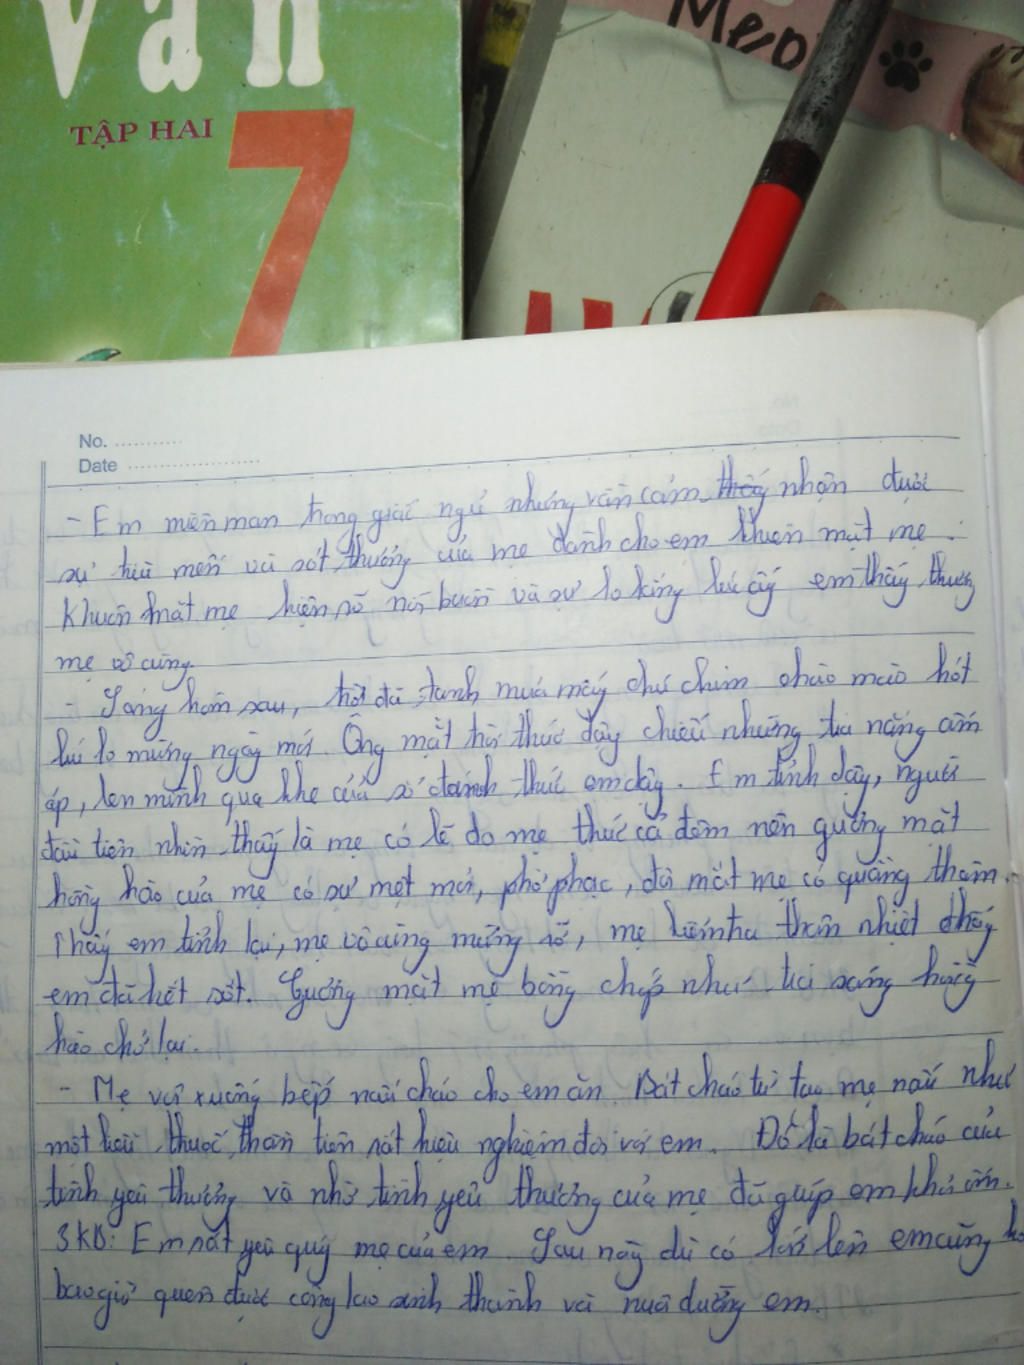 văn
TẬP HAI
7
Meo
No. ...........
Date ......................
- Em miên man trong giấc ngủ nhưng vẫn cảm thấy nhận được
sự triù mến và sót thương của mẹ dành cho em khuôn mặt mẹ.
Khuôn mặt mẹ hiện rõ nỗi buồn và sự lo lắng lúc ấy em thấy thương
mẹ vô cùng.
- Sáng hôm sau, trời đã tạnh mưa mấy chú chim chào mào hót
líu lo mừng ngày mới. Ông mặt trời thức dậy chiếu những tia nắng ấm
áp, len mình qua khe cửa sổ đánh thức em dậy. Em tỉnh dậy, người
đầu tiên nhìn thấy là mẹ có lẽ do mẹ thức cả đêm nên gương mặt
hồng hào của mẹ có sự mệt mỏi, phờ phạc, đôi mắt mẹ có quầng thâm.
Thấy em tỉnh lại, mẹ vô cùng mừng rỡ, mẹ kiểm tra thân nhiệt thấy
em đã hết sốt. Gương mặt mẹ bỗng chốc như tia sáng hồng
hào chở lại.
- Mẹ vội xuống bếp nấu cháo cho em ăn. Bát cháo từ tay mẹ nấu như
một liều thuốc thần tiên rất hiệu nghiệm đối với em. Đó là bát cháo của
tình yêu thương và nhờ tình yêu thương của mẹ đã giúp em khỏi ốm.
3 KB: Em rất yêu quý mẹ của em. Sau này dù có lớn lên em cũng ko
bao giờ quên được công lao sinh thành và nuôi dưỡng em.